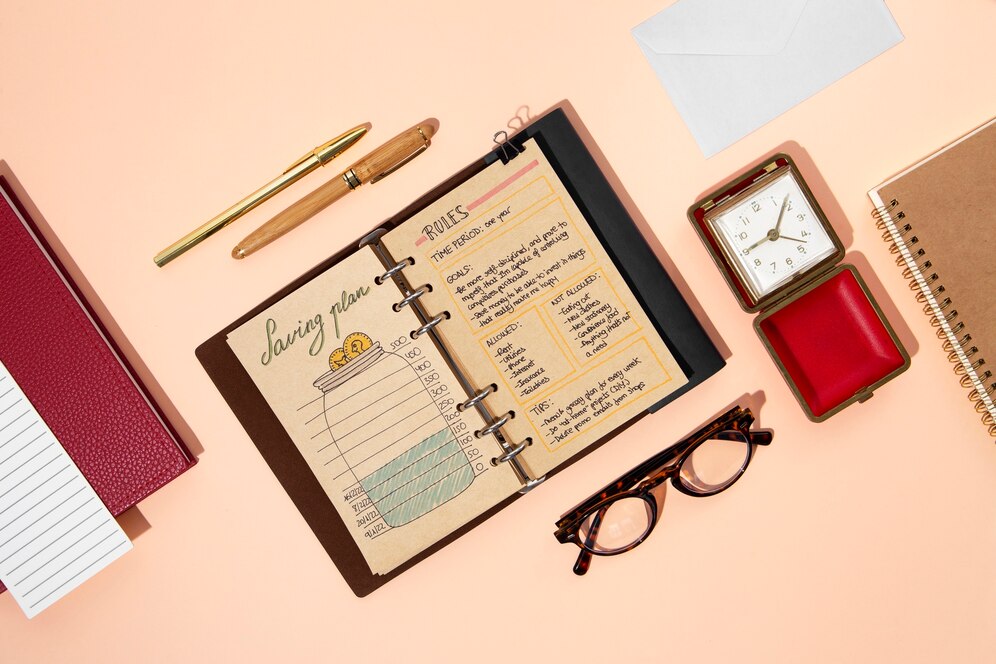 Saving plan
500
450
400
350
300
250
200
150
100
50
0
8/2/22
20/1/22
9/1/22
RULES
TIME PERIOD: one year
GOALS:
-Be more self-disciplined, and prove to
myself that I'm capable of controlling
compulsive purchases
-Save money to be able to invest in things
that really make me happy
ALLOWED:
-Rent
-Utilities
-Phone
-Internet
-Insurance
-Toiletries
NOT ALLOWED:
-Eating out
-New clothes
-New stationery
-Convenience food
-Anything that's not
a need
TIPS:
-Menu & grocery plan for every week
-Do "at-home" projects (DIY)
-Delete promo emails from shops
12
1
2
3
4
5
6
7
8
9
10
11